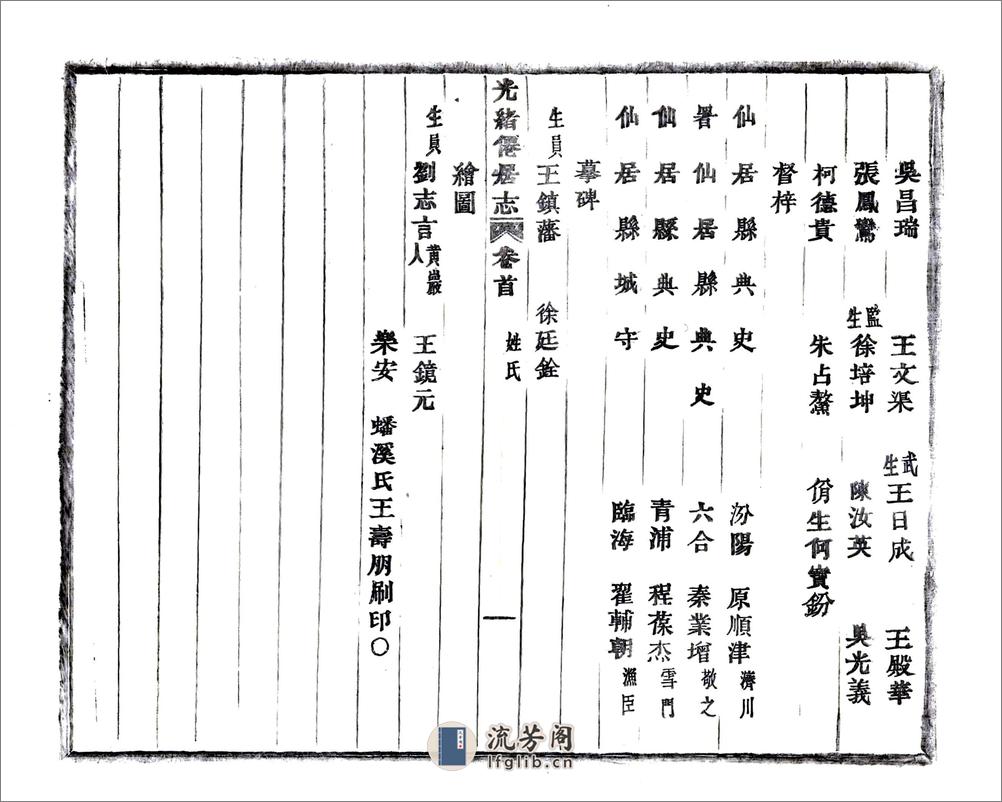 吳昌瑞 王文渠 武生王日成 王殿華
張鳳鶱 監生徐培坤 陳汝英 吳光義
柯德貴 朱占鰲 佾生何寶鈖
督梓
仙居縣典史 汾陽 原順津濟川
署仙居縣典史 六合 秦業增敬之
仙居縣典史 青浦 程葆杰雪門
仙居縣城守 臨海 翟輔朝漁臣
摹碑
生員王鎮藩 徐廷銓
光緒僊居志 卷首 姓氏 一
繪圖
生員劉志言黃巖人 王鏡元
樂安 蟠溪氏王壽朋刷印○
流芳阁
lfglib.cn